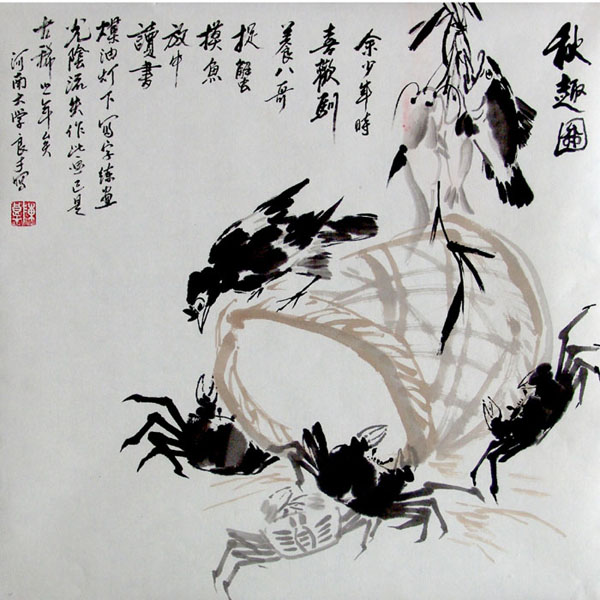 秋趣圖
余少年時
喜歡
養八哥
捉蟹
摸魚
放牛
讀書
煤油灯下写字练画
光陰流失作此画已是
古稀之年矣
河南大学良